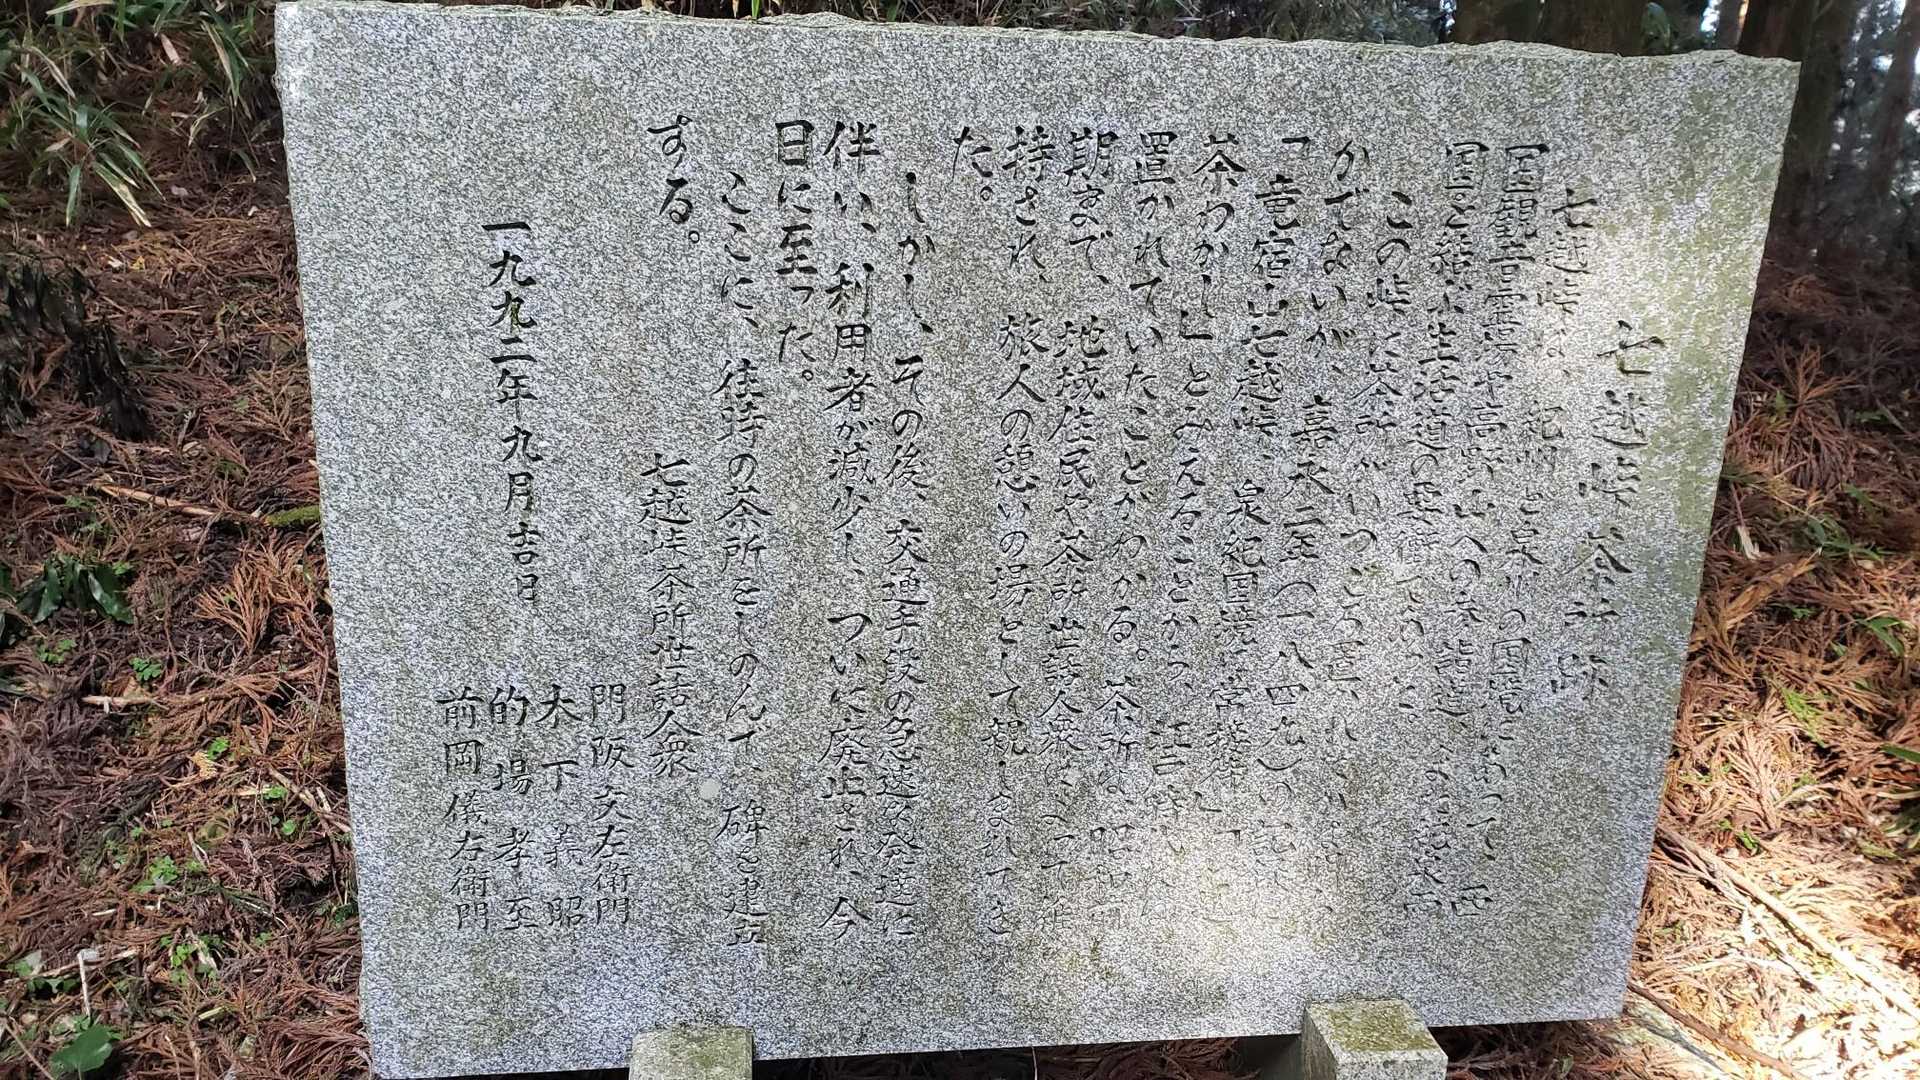 七越峠茶所跡
七越峠は、紀州と泉州の国境にあって、西
国観音霊場や高野山への参詣道
国と結ぶ生活道の要衝であった。
この峠に茶所がいつごろ置かれたかは
かでないが、嘉永二年(一八四九)の記録に
「竜宿山七越峠、泉紀国境に
茶わかし」とみえることから、
置かれていたことがわかる。茶所は、昭和初
期まで、地域住民や茶所世話人衆によって維
持され、旅人の憩いの場として親しまれてき
た。
しかし、その後、交通手段の急速な発達に
伴い、利用者が減少し、ついに廃止され、今
日に至った。
ここに、往時の茶所をしのんで、碑を建立
する。
七越峠茶所世話人衆
門阪文左衛門
木下義昭
的場孝至
前岡儀右衛門
一九九二年九月吉日